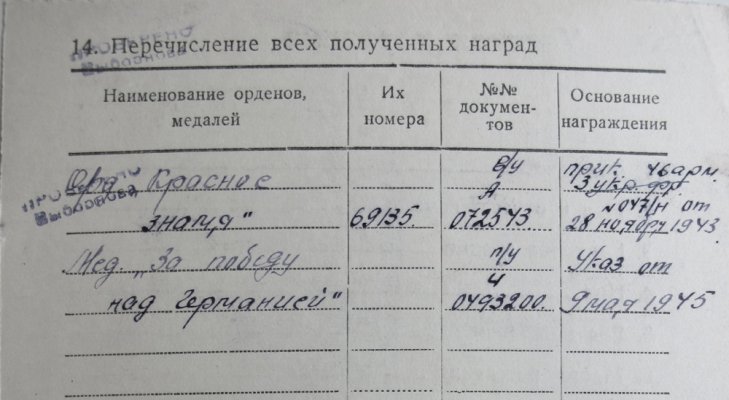 14. Перечисление всех полученных наград
ПРОВЕРЕНО
Выборнова
Наименование орденов, медалей
Их номера
№№ докумен-тов
Основание награждения
ПРОВЕРЕНО
Выборнова
Орд. Красное в/у прик. 46 арм.
А 3 укр. фр.
2047/н от
знамя" 69135. 072543 28 ноября 1943
Мед. „За победу п/у Указ от
Ч
над Германией" 0493200. 9 мая 1945